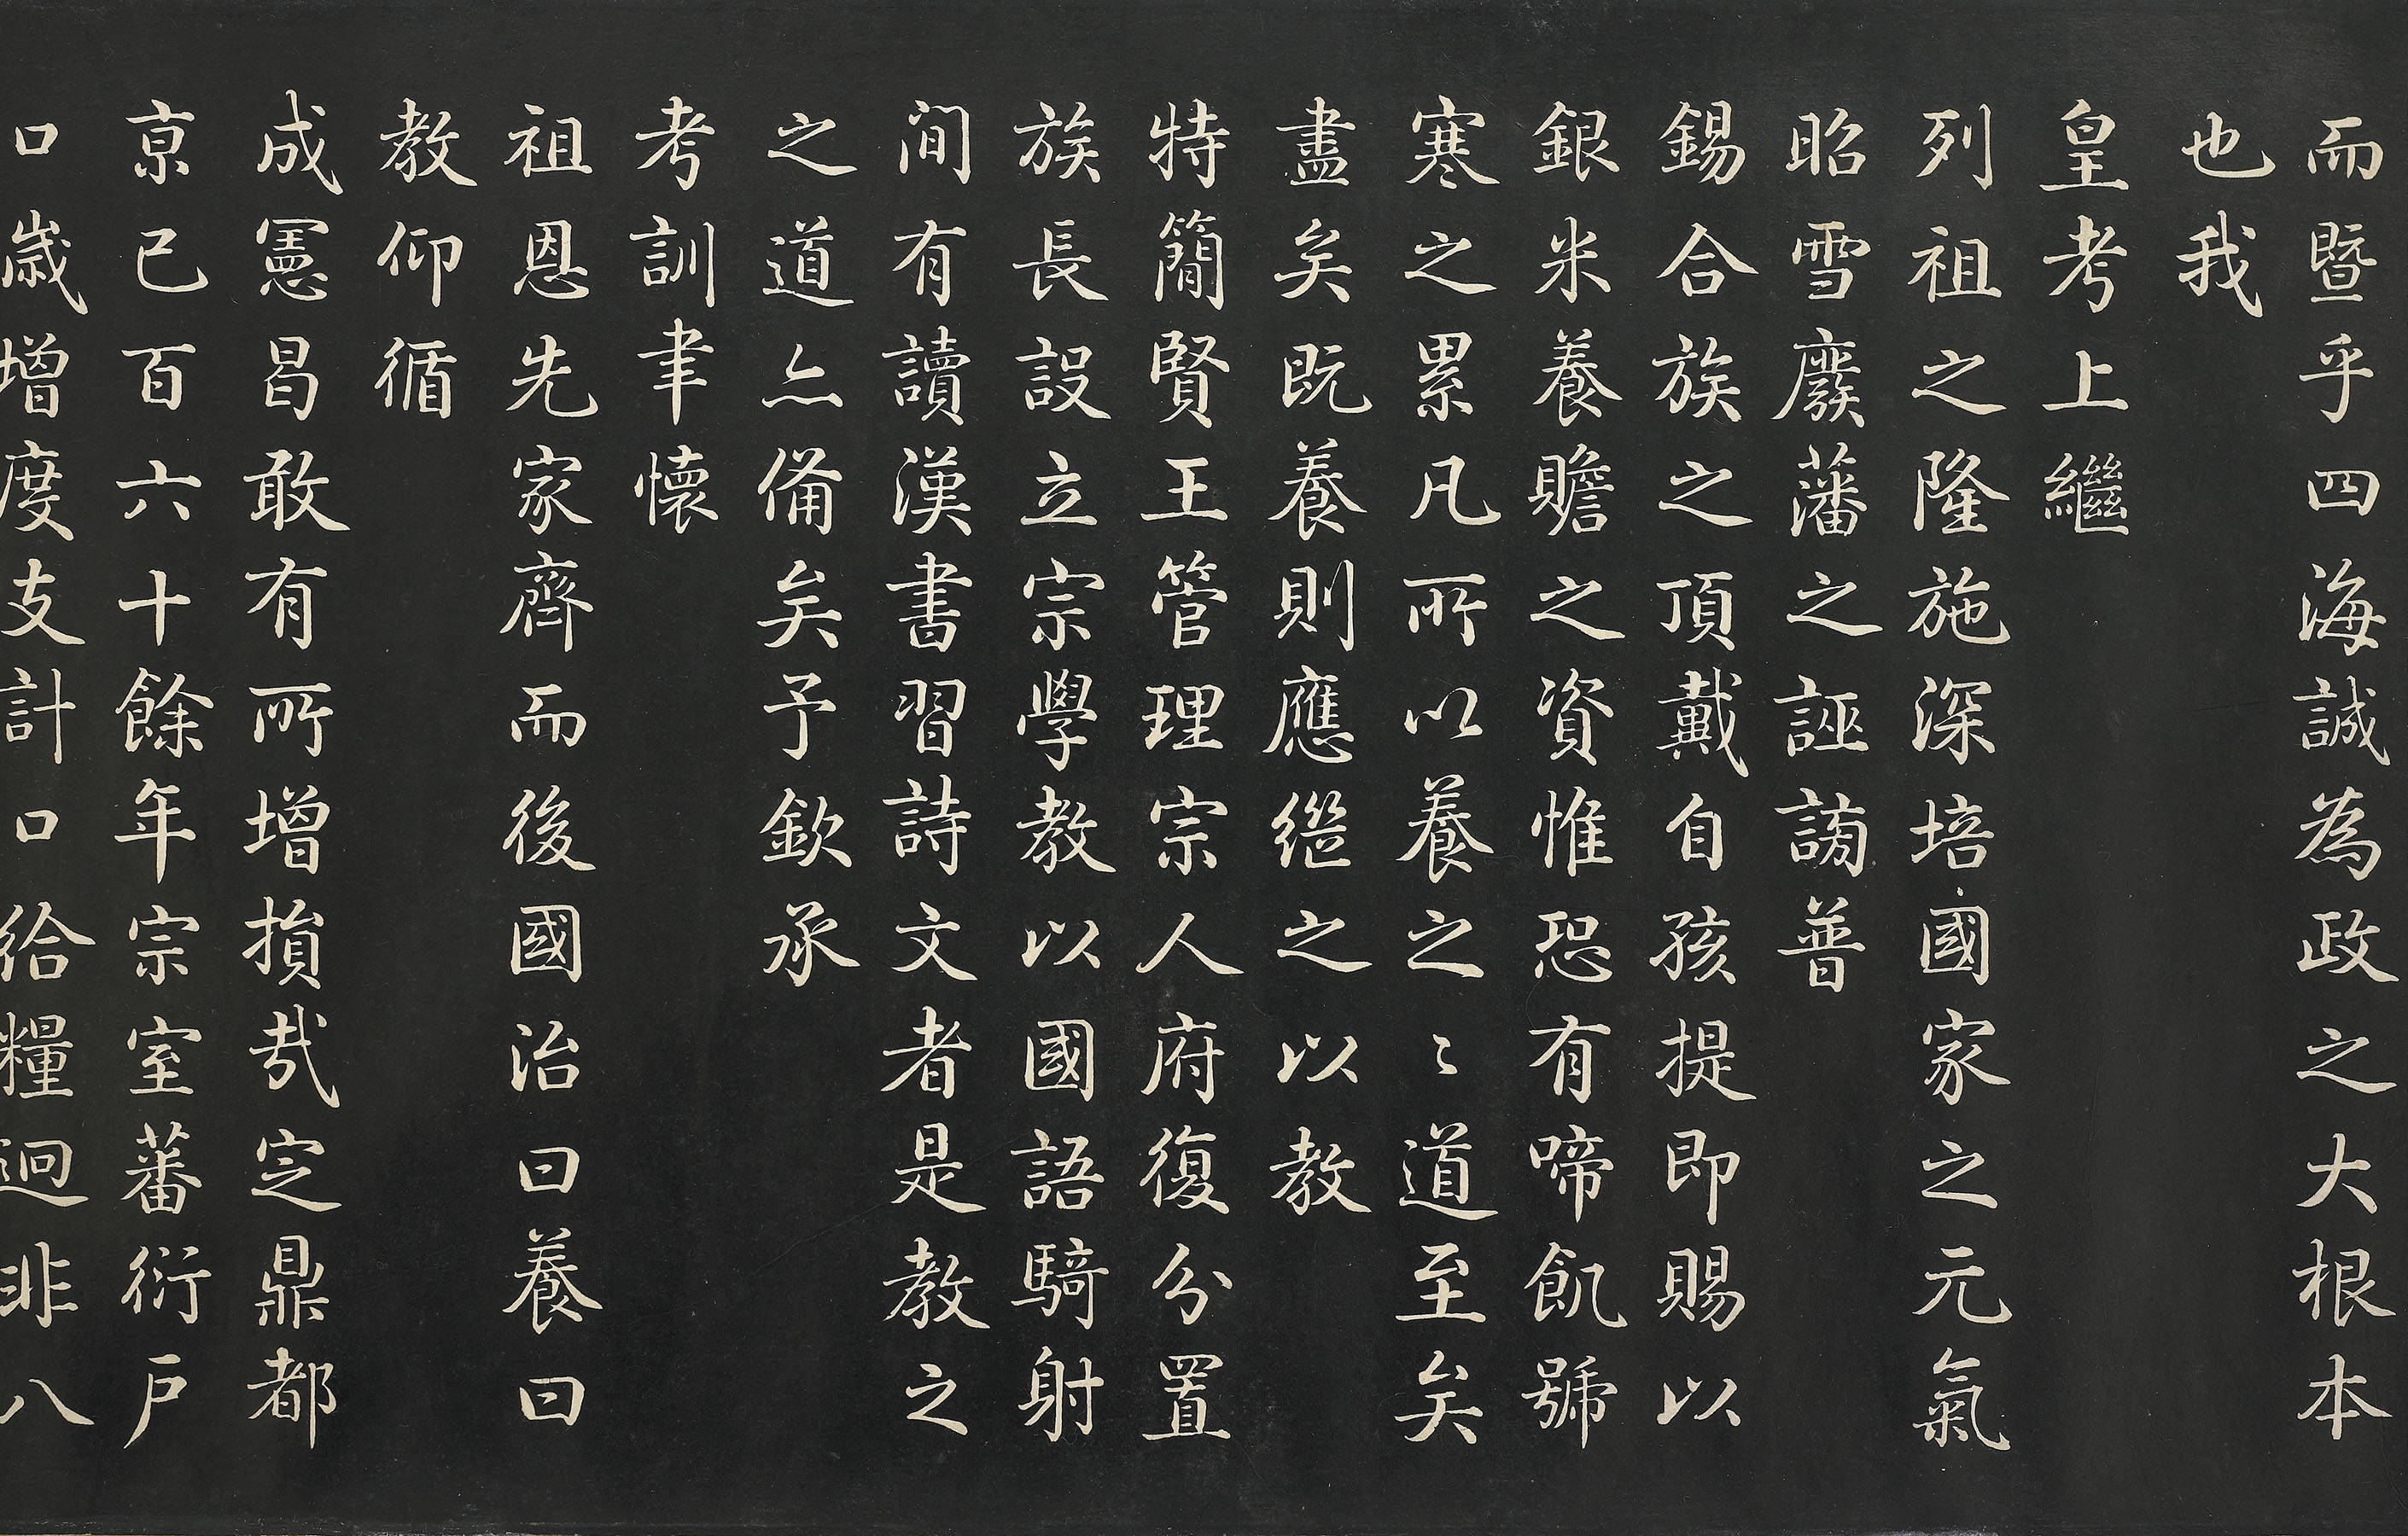 而曁乎四海誠為政之大根本
也我
皇考上繼
列祖之隆施深培國家之元氣
昭雪廢藩之誣謗普
錫合族之頂戴自孩提即賜以
銀米養贍之資惟恐有啼飢號
寒之累凡所以養之〻道至矣
盡矣既養則應繼之以教
特簡賢王管理宗人府復分置
族長設立宗學教以國語騎射
間有讀漢書習詩文者是教之
之道亦備矣予欽承
考訓聿懷
祖恩先家齊而後國治曰養曰
教仰循
成憲曷敢有所增損哉定鼎都
京已百六十餘年宗室蕃衍戶
口歲增度支計口給糧迥非八